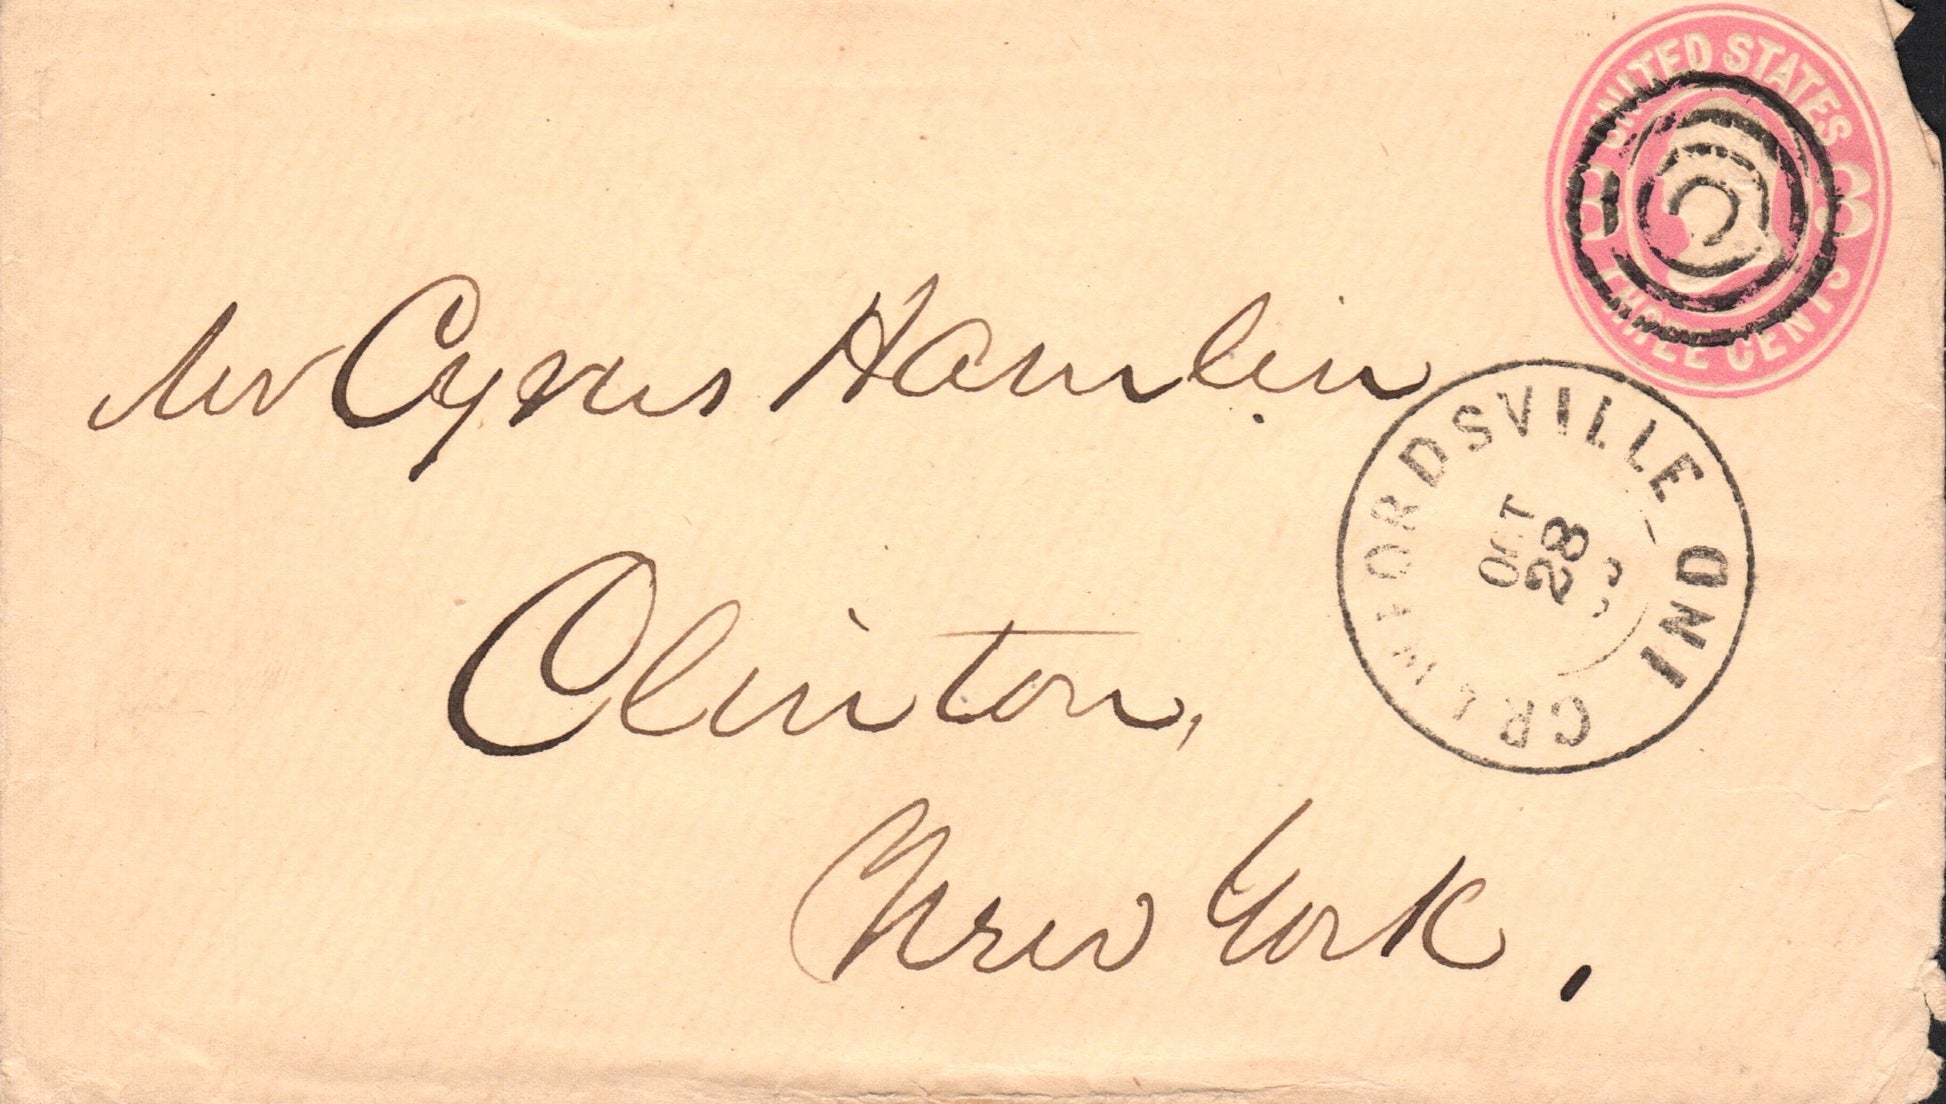 UNITED STATES
3 3
THREE CENTS
Mr Cyrus Hamlin
CRAWFORDSVILLE IND
OCT
28
Clinton,
New York.